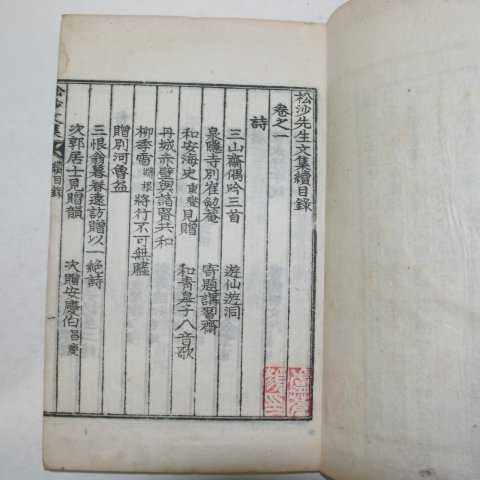 松沙先生文集續目錄
卷之一
詩
三山齋偶吟三首 遊仙遊洞
泉隱寺別崔勉菴 寄題講習齋
和安海史重燮見贈 和青皐子八音歌
丹城赤壁與諸賢共和
柳季雪將行不可無贐
贈別河魯益
三恨翁暮春遠訪贈以一絶詩
次郭居士見贈韻 次贈安慶伯昌燮
松沙文集 續目錄